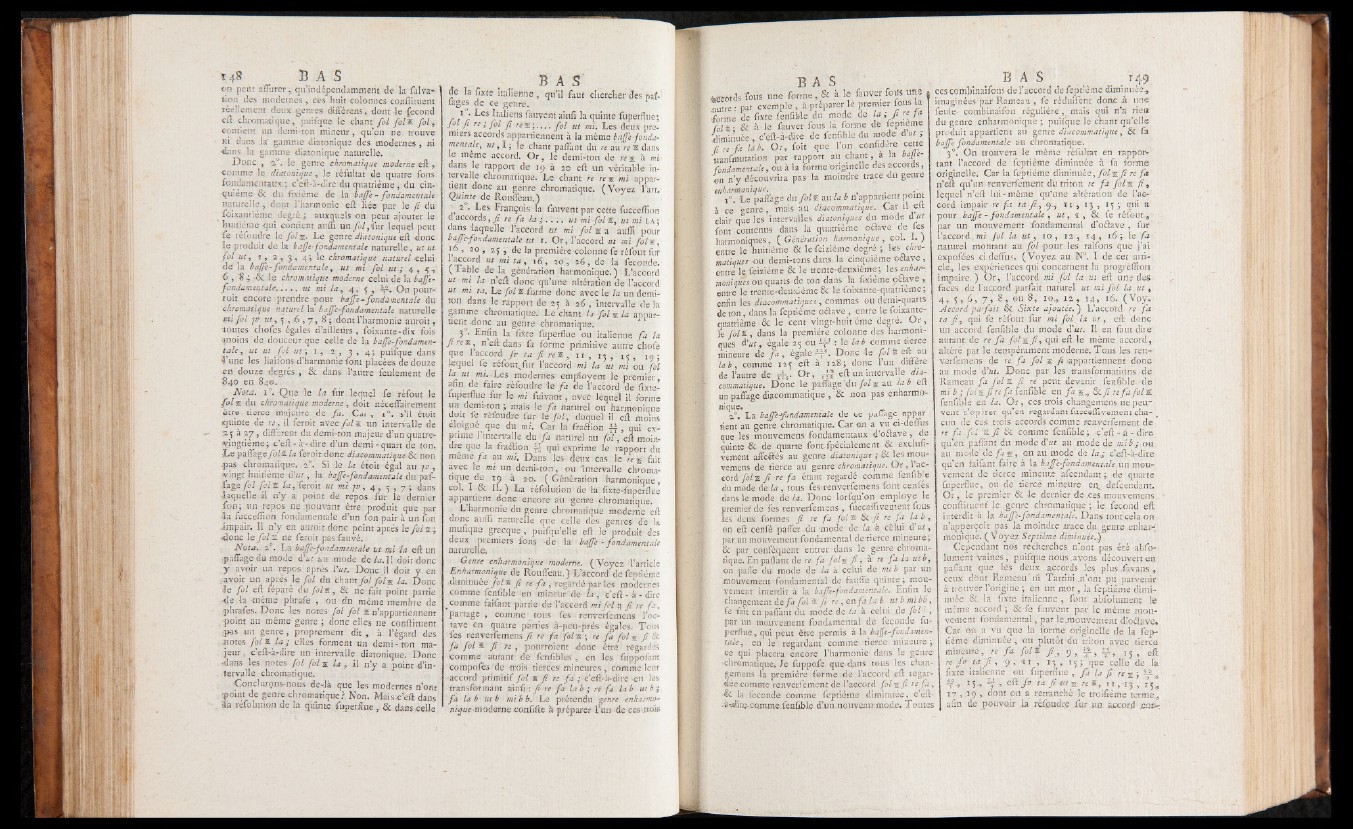 148 B A S
on peut assurer, qu'indépendamment de la salva-
tion des modernes, ces huit colonnes constituent
réellement deux genres différens, dont le second
est chromatique, puisque le chant sol sol ♯ sol,
contient un demi-ton mineur, qu'on ne trouve
ni dans la gamme diatonique des modernes, ni
dans la gamme diatonique naturelle.
Donc, 2°. le genre chromatique moderne est,
comme le diatonique, le résultat de quatre sons
fondamentaux; c'est-à-dire du quatrième, du cin-
quième & du sixième de la basse-fondamentale
naturelle, dont l'harmonie est liée par le si du
soixantième degré; auxquels on peut ajouter le
huitième qui contient aussi un sol, sur lequel peut
se résoudre le sol ♯. Le genre diatonique est donc
le produit de la basse-fondamentale naturelle, ut ut
sol ut, 1, 2, 3, 4; le chromatique naturel celui
de la basse-fondamentale, ut mi sol ut; 4, 5,
6, 8; & le chromatique moderne celui de la basse-
fondamentale..... ut mi la, 4, 5,
On pour-
roit encore prendre pour basse-fondamentale du
chromatique naturel la basse-fondamentale naturelle
mi sol ut, 5, 6, 7, 8; dont l'harmonie auroit,
toutes choses égales d'ailleurs, soixante-dix fois
moins de douceur que celle de la basse-fondamen-
tale, ut ut sol ut; 1, 2, 3, 4; puisque dans
l'une les liaisons d'harmonie sont placées de douze
en douze degrés, & dans l'autre seulement de
840 en 840.
Nota. 1°. Que le la sur lequel se résout le
sol ♯ du chromatique moderne, doit nécessairement
être tierce majeure de fa. Car, 1°. s'il étoit
quinte de re, il feroit avec sol ♯ un intervalle de
25 à 27, différent du demi-ton majeur d'un quatre-
vingtième; c'est-à-dire d'un demi-quart de ton.
Le passage sol ♯ la seroit donc diacommatique & non
pas chromatique. 2°. Si le la étoit égal au
vingt-huitième d'ut, la basse-fondamentale du pas-
sage sol sol ♯ la, seroit ut mi, 4, 5, 7; dans
laquelle il n'y a point de repos sur le dernier
son; un repos ne pouvant être produit que par
la succession fondamentale d'un son pair à un son
impair. Il n'y en auroit donc point après le sol ♯;
donc le sol ♯ ne seroit pas sauvé.
Nota. 2°. La basse-fondamentale ut mi la est un
passage du mode d'ut au mode de la. Il doit donc
y avoir un repos après l'ut. Donc il doit y en
avoir un après le sol du chant sol sol ♯ la. Donc
le sol est séparé du sol ♯, & ne fait point partie
de la même phrase, ou du même membre de
phrases. Donc les notes sol sol ♯ n'appartiennent
point au même genre; donc elles ne constituent
pas un genre, proprement dit, à l'égard des
notes sol ♯ la; elles forment un demi-ton ma-
jeur, c'est-à-dire un intervalle diatonique. Donc
dans les notes sol sol ♯ la, il n'y a point d'in-
tervalle chromatique.
Conclurons-nous de-là que les modernes n'ont
point de genre chromatique? Non. Mais c'est dans
la résolution de la quinte superflue, & dans celle
B A S
de la sixte italienne, qu'il faut chercher des pas-
sages de ce genre.
1°. Les Italiens sauvent ainsi la quinte superflue;
sol si re; sol si re ♯;.... sol ut mi. Les deux pre-
miers accords appartiennent à la même basse fonda-
mentale, ut, 1; le chant passant du re au re ♯ dans
le même accord. Or, le demi-ton de re ♯ à mi
dans le rapport de 19 à 20 est un véritable in-
tervalle chromatique. Le chant re re ♯ mi appar-
tient donc au genre chromatique. (Voyez l'art.
Quinte de Rousseau.)
2°. Les François la sauvent par cette succession
d'accords, si re fa la;.... ut mi sol ♯, ut mi LA;
dans laquelle l'accord ut mi sol ♯ a aussi pour
basse-fondamentale ut 1. Or, l'accord ut mi sol ♯,
16, 20, 25, de la première colonne se résout sur
l'accord ut mi ta, 16, 20, 26, de la seconde.
(Table de la génération harmonique.) L'accord
ut mi la n'est donc qu'une altération de l'accord
ut mi ta. Le sol ♯ forme donc avec le la un demi-
ton dans le rapport de 25 à 26, intervalle de la
gamme chromatique. Le chant la sol ♯ la appar-
tient donc au genre chromatique.
3°. Enfin la sixte superflue ou italienne fa la
si re ♯, n'est dans sa forme primitive autre chose
que l'accord ta si re ♯, 11, 13, 15, 19;
lequel se résout sur l'accord mi la ut mi ou sol
la ut mi. Les modernes emploient le premier,
afin de faire résoudre le fa de l'accord de sixte-
superflue sur le mi suivant, avec lequel il forme
un demi-ton; mais le fa naturel ou harmonique
doit se résoudre sur le sol, duquel il est moins
éloigné que du mi. Car la fraction, qui ex-
prime l'intervalle du fa naturel au sol, est moin-
dre que la fraction qui exprime le rapport du
même fa au mi. Dans les deux cas le re ♯ fait
avec le mi un demi-ton, ou intervalle chroma-
tique de 19 à 20. (Génération harmonique,
col. I & II.) La résolution de la sixte-superflue
appartient donc encore au genre chromatique.
L'harmonie du genre chromatique moderne est
donc aussi naturelle que celle des genres de la
musique grecque, puisqu'elle est le produit des
deux premiers sons de la basse-fondamentale
naturelle.
Genre enharmonique moderne. (Voyez l'article
Enharmonique de Rousseau.) L'accord de septième
diminuée sol ♯ si re fa, regardé par les modernes
comme sensible en mineur de la, c'est-à-dire
comme faisant partie de l'accord mi sol ♯ si re fa,
partage, comme tous ses renversemens l'oc-
tave en quatre parties à-peu-près égales. Tous
ses renversemens si re fa sol ♯; re fa sol ♯ si &
fa sol ♯ si re, pourroient donc être regardés
comme autant de sensibles, en les supposant
composés de trois tierces mineures, comme leur
accord primitif sol ♯ si re fa; c'est-à-dire en les
transformant ainsi: si re fa la b; re fa la b ut b;
fa la b ut b mi b b. Le prétendu genre enharmo-
nique moderne consiste à préparer l'un de ces trois
B A S
accords sous une forme, & à le sauver sous une
autre: par exemple, à préparer le premier sous la
forme de sixte sensible du mode de la; si re fa
sol ♯; & à le sauver sous la forme de septième
diminuée, c'est-à-dire de sensible du mode d'ut;
si re fa la b. Or, soit que l'on considère cette
transmutation par rapport au chant, à la basse-
fondamentale, ou à la forme originelle des accords,
on n'y découvrira pas la moindre trace du genre
enharmonique.
1°. Le passage du sol ♯ au la b n'appartient point
à ce genre, mais au diacommatique. Car il est
clair que les intervalles diatoniques du mode d'ut
sont contenus dans la quatrième octave de ses
harmoniques, (Génération harmonique, col. I.)
entre le huitième & le seizième degré; les chro-
matiques ou demi-tons dans la cinquième octave,
entre le seizième & le trente-deuxième; les enhar-
moniques ou quarts de ton dans la sixième octave,
entre le trente-deuxième & le soixante-quatrième;
enfin les diacommatiques, commas ou demi-quarts
de ton, dans la septième octave, entre le soixante-
quatrième & le cent vingt-huitième degré. Or,
le sol ♯, dans la première colonne des harmoni-
ques d'ut, égale 25 ou : le la b comme tierce
mineure de fa, égale. Donc le sol ♯ est au
la b, comme 125 est à 128; donc l'un diffère
de l'autre de. Or, est un intervalle dia-
commatique. Donc le passage du sol ♯ au la b est
un passage diacommatique, & non pas enharmo-
nique.
2°. La basse-fondamentale de ce passage appar-
tient au genre chromatique. Car on a vu ci-dessus
que les mouvemens fondamentaux d'octave, de
quinte & de quarte sont spécialement & exclusi-
vement affectés au genre diatonique; & les mou-
vemens de tierce au genre chromatique. Or, l'ac-
cord sol ♯ si re fa étant regardé comme sensible
du mode de la, tous ses renversemens sont censés
dans le mode de la. Donc lorsqu'on emploie le
premier de ses renversemens, successivement sous
les deux formes si re fa sol ♯ & si re fa la b,
on est censé passer du mode de la à celui d'ut,
par un mouvement fondamental de tierce mineure;
& par conséquent entrer dans le genre chroma-
tique. En passant de re fa sol ♯ si, à re fa la ut b,
on passe du mode de la à celui de mi b par un
mouvement fondamental de fausse quinte; mou-
vement interdit à la basse-fondamentale. Enfin le
changement de fa sol ♯ si re, en fa la b ut b mi bb,
se fait en passant du mode de la à celui de sol b,
par un mouvement fondamental de seconde su-
perflue, qui peut être permis à la basse-fondamen-
tale, en le regardant comme tierce mineure;
ce qui placera encore l'harmonie dans le genre
chromatique. Je suppose que dans tous les chan-
gemens la première forme de l'accord est regar-
dée comme renversement de l'accord sol ♯ si re fa,
& la seconde comme septième diminuée, c'est-
à-dire comme sensible d'un nouveau mode. Toutes
B A S 149
ces combinaisons de l'accord de septième diminuée,
imaginées par Rameau, se réduisent donc à une
seule combinaison régulière, mais qui n'a rien
du genre enharmonique; puisque le chant qu'elle
produit appartient au genre diacommatique, & sa
basse fondamentale au chromatique.
3°. On trouvera le même résultat en rappor-
tant l'accord de septième diminuée à sa forme
originelle. Car la septième diminuée, sol ♯ si re fa
n'est qu'un renversement du triton re fa sol ♯ si,
lequel n'est lui-même qu'une altération de l'ac-
cord impair re fa ta si, 9, 11, 13, 15; qui a
pour basse-fondamentale, ut, 1, & se résout,
par un mouvement fondamental d'octave, sur
l'accord mi sol la ut, 10, 12, 14, 16; le fa
naturel montant au sol pour les raisons que j'ai
exposées ci-dessus. (Voyez au N°. I de cet arti-
cle, les expériences qui concernent la progression
impaire.) Or, l'accord mi sol la ut est une des
faces de l'accord parfait naturel ut mi sol la ut,
4, 5, 6, 7, 8, ou 8, 10, 12, 14, 16. (Voy.
Accord parfait & Sixte ajoutée.) L'accord re fa
ta si, qui se résout sur mi sol la ut, est donc
un accord sensible du mode d'ut. Il en faut dire
autant de re fa sol ♯ si, qui est le même accord,
altéré par le tempérament moderne. Tous les ren-
versemens de re fa sol ♯ si appartiennent donc
au mode d'ut. Donc par les transformations de
Rameau fa sol ♯ si re peut devenir sensible de
mi b; sol ♯ si re fa sensible en fa ♯, & si re fa sol ♯
sensible en la. Or, ces trois changemens ne peu-
vent s'opérer qu'en regardant successivement cha-
cun de ces trois accords comme renversement de
re fa sol ♯ si & comme sensible; c'est-à-dire
qu'en passant du mode d'ut au mode de mi b; ou
au mode de fa ♯, ou au mode de la; c'est-à-dire
qu'en faisant faire à la basse-fondamentale un mou-
vement de tierce mineure ascendant; de quarte
superflue, ou de tierce mineure en descendant.
Or, le premier & le dernier de ces mouvemens
constituent le genre chromatique; le second est
interdit à la basse-fondamentale. Dans tout cela on
n'apperçoit pas la moindre trace du genre enhar-
monique. (Voyez Septième diminuée.)
Cependant nos recherches n'ont pas été abso-
lument vaines, puisque nous avons découvert en
passant que les deux accords les plus savans,
ceux dont Rameau ni Tartini n'ont pu parvenir
à trouver l'origine; en un mot, la septième dimi-
nuée & la sixte italienne, sont absolument le
même accord; & se sauvent par le même mou-
vement fondamental, par le mouvement d'octave.
Car on a vu que la forme originelle de la sep-
tième diminuée, ou plutôt du triton avec tierce
mineure, re fa sol ♯ si, 9, 15, est
re fa ta si, 9, 11, 13, 15; que celle de la
sixte italienne ou superflue, fa la si re ♯;
15, est fa ta si re ♯, 11, 13, 15,
17, 19, dont on a retranché le troisième terme,
afin de pouvoir la résoudre sur un accord con-